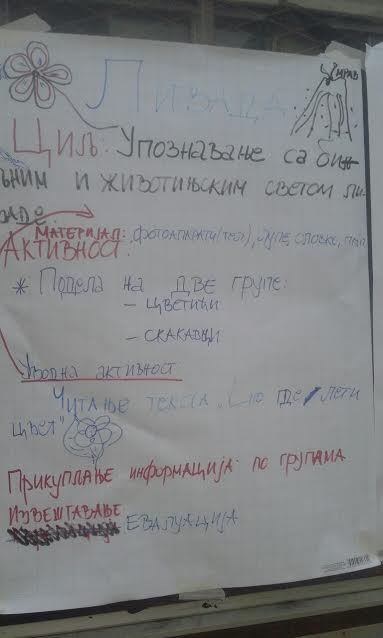 Ливада
МРАВ
Циљ: Упознавање са биљ-
ним и животињским светом ли-
ваде
МАТЕРИЈАЛ: фотоапарати(тел), лупе, сличице,
Активност:
* Подела на две групе:
– цветићи
– скакавци
Уводна активност
Читање текста „ где лети
цвет"
Прикупљање информација по групама
извештавање
евалуација